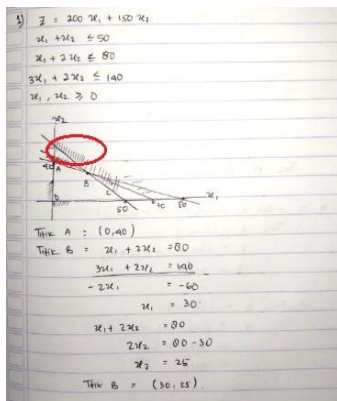 1) Z = 200 x1 + 150 x2
x1 + x2 ≤ 50
x1 + 2x2 ≤ 80
3x1 + 2x2 ≤ 140
x1, x2 ≥ 0
x2
40 A
B
C
x1
50 70 80
Titik A : (0,40)
Titik B = x1 + 2x2 = 80
3x1 + 2x2 = 140
-2x1 = -60
x1 = 30
x1 + 2x2 = 80
2x2 = 80 - 30
x2 = 25
Titik B = (30, 25)